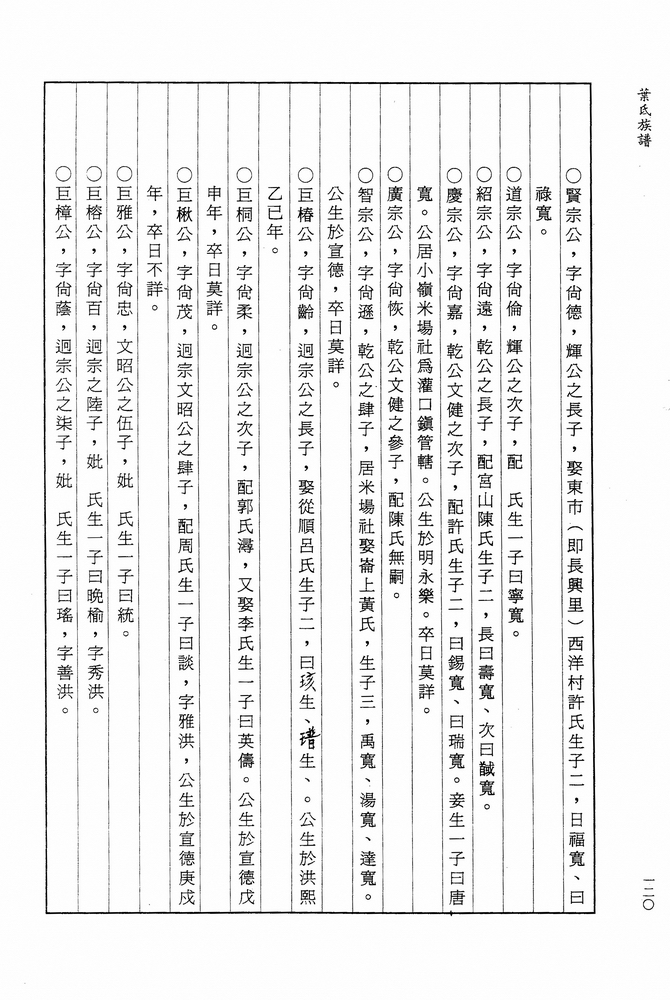 葉氏族譜
○賢宗公，字尙德，輝公之長子，娶東市（即長興里）西洋村許氏生子二，日福寬、曰
祿寬。
○道宗公，字尙倫，輝公之次子，配　氏生一子曰寧寬。
○紹宗公，字尙遠，乾公之長子，配宮山陳氏生子二，長曰壽寬、次曰諴寬。
○慶宗公，字尙嘉，乾公文健之次子，配許氏生子二，曰錫寬、曰瑞寬。妾生一子曰唐
寬。公居小嶺米場社爲灌口鎭管轄。公生於明永樂。卒日莫詳。
○廣宗公，字尙恢，乾公文健之參子，配陳氏無嗣。
○智宗公，字尙遜，乾公之肆子，居米場社娶崙上黃氏，生子三，禹寬、湯寬、達寬。
公生於宣德，卒日莫詳。
○巨椿公，字尙齡，迥宗公之長子，娶從順呂氏生子二，曰珓生、瑨生、。公生於洪熙
乙已年。
○巨桐公，字尙柔，迥宗公之次子，配郭氏潯，又娶李氏生一子曰英儔。公生於宣德戊
申年，卒日莫詳。
○巨楸公，字尙茂，迥宗文昭公之肆子，配周氏生一子曰談，字雅洪，公生於宣德庚戍
年，卒日不詳。
○巨雅公，字尙忠，文昭公之伍子，妣　氏生一子曰統。
○巨榕公，字尙百，迥宗之陸子，妣　氏生一子曰晚榆，字秀洪。
○巨樟公，字尙蔭，迥宗公之柒子，妣　氏生一子曰瑤，字善洪。
一二○